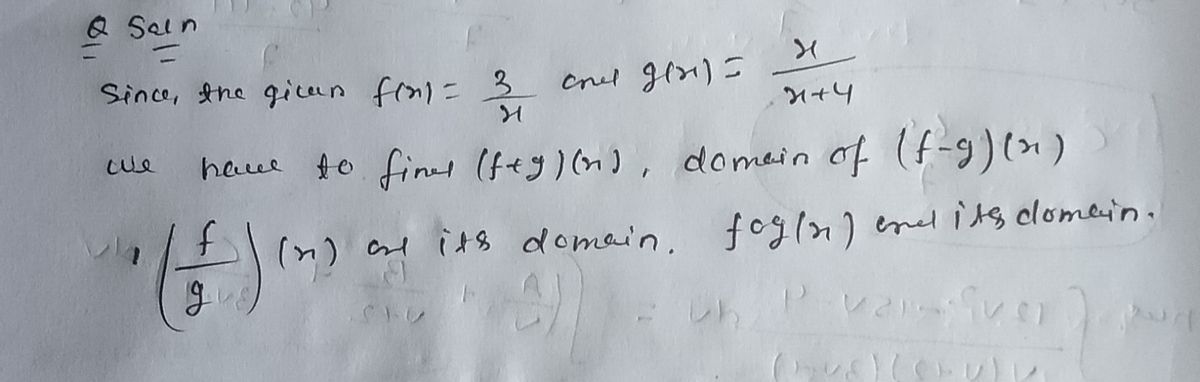 Q Soln
Since, the given f(x) = 3/x and g(x) = x/x+4
we have to find (f+g)(x), domain of (f-g)(x)
, (f/g)(x) and its domain. fog(x) and its domain.